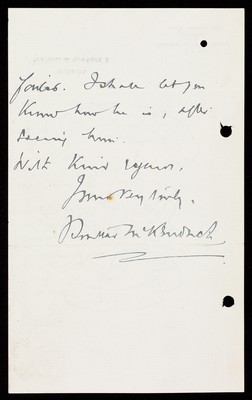 I shall let you
know how he is, after
seeing him.
With kind regards,
Yours very truly,